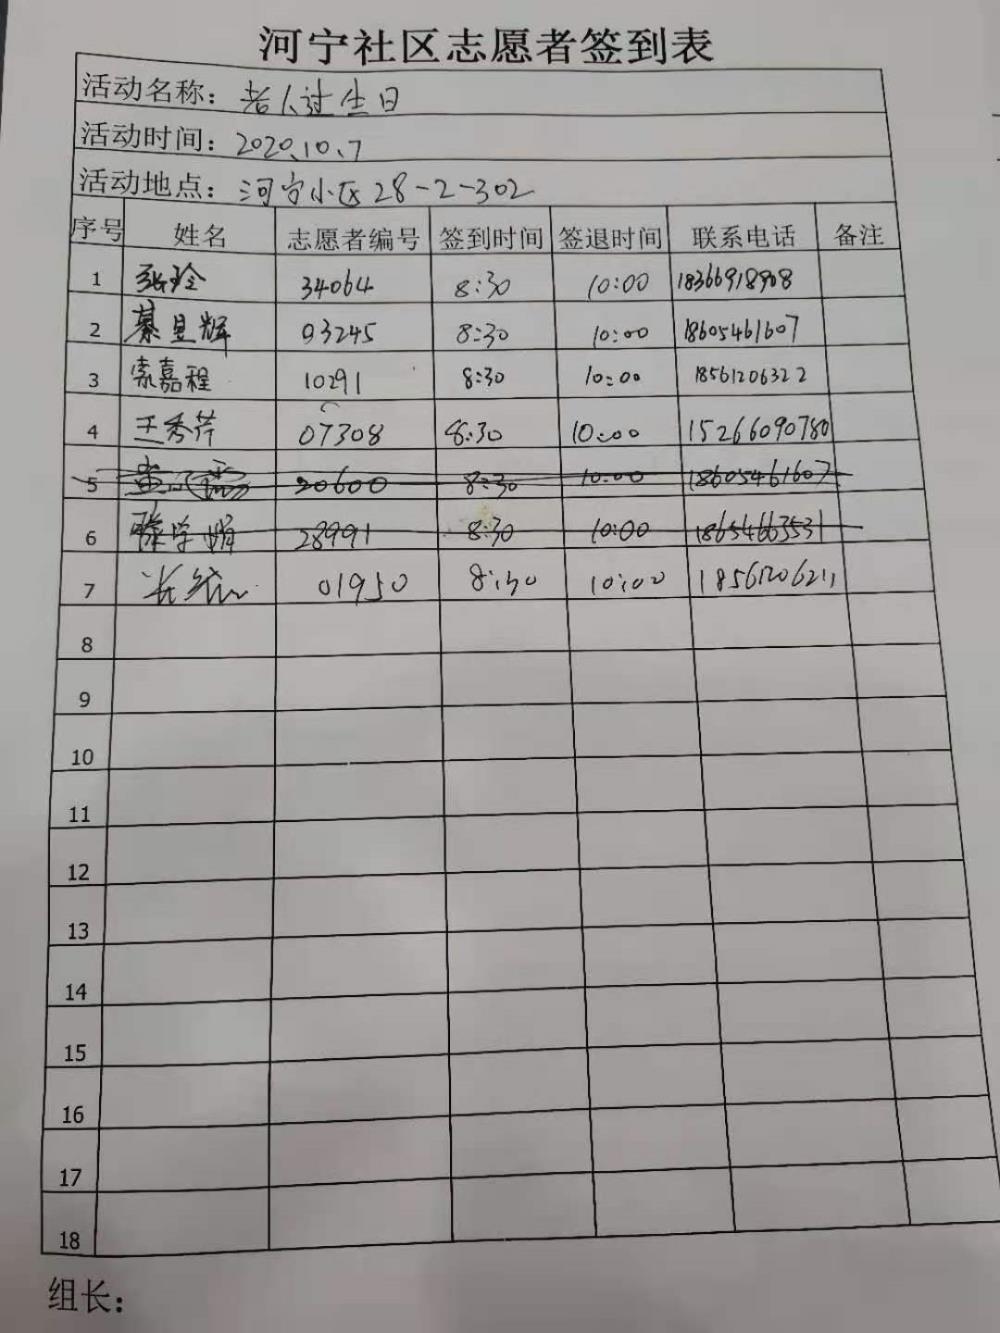 河宁社区志愿者签到表
活动名称：老人过生日
活动时间：2020.10.7
活动地点：河宁小区28-2-302
序号 姓名 志愿者编号 签到时间 签退时间 联系电话 备注
1 张玲 34064 8:30 10:00 18366918908
2 綦星辉 03245 8:30 10:00 18605461607
3 索嘉程 10291 8:30 10:00 18561206322
4 王秀芹 07308 8:30 10:00 15266090780
5 20600 8:30 10:00 18605461607
6 滕学娟 28991 8:30 10:00 18654663531
7 01950 8:30 10:00 18561206211
8
9
10
11
12
13
14
15
16
17
18
组长：